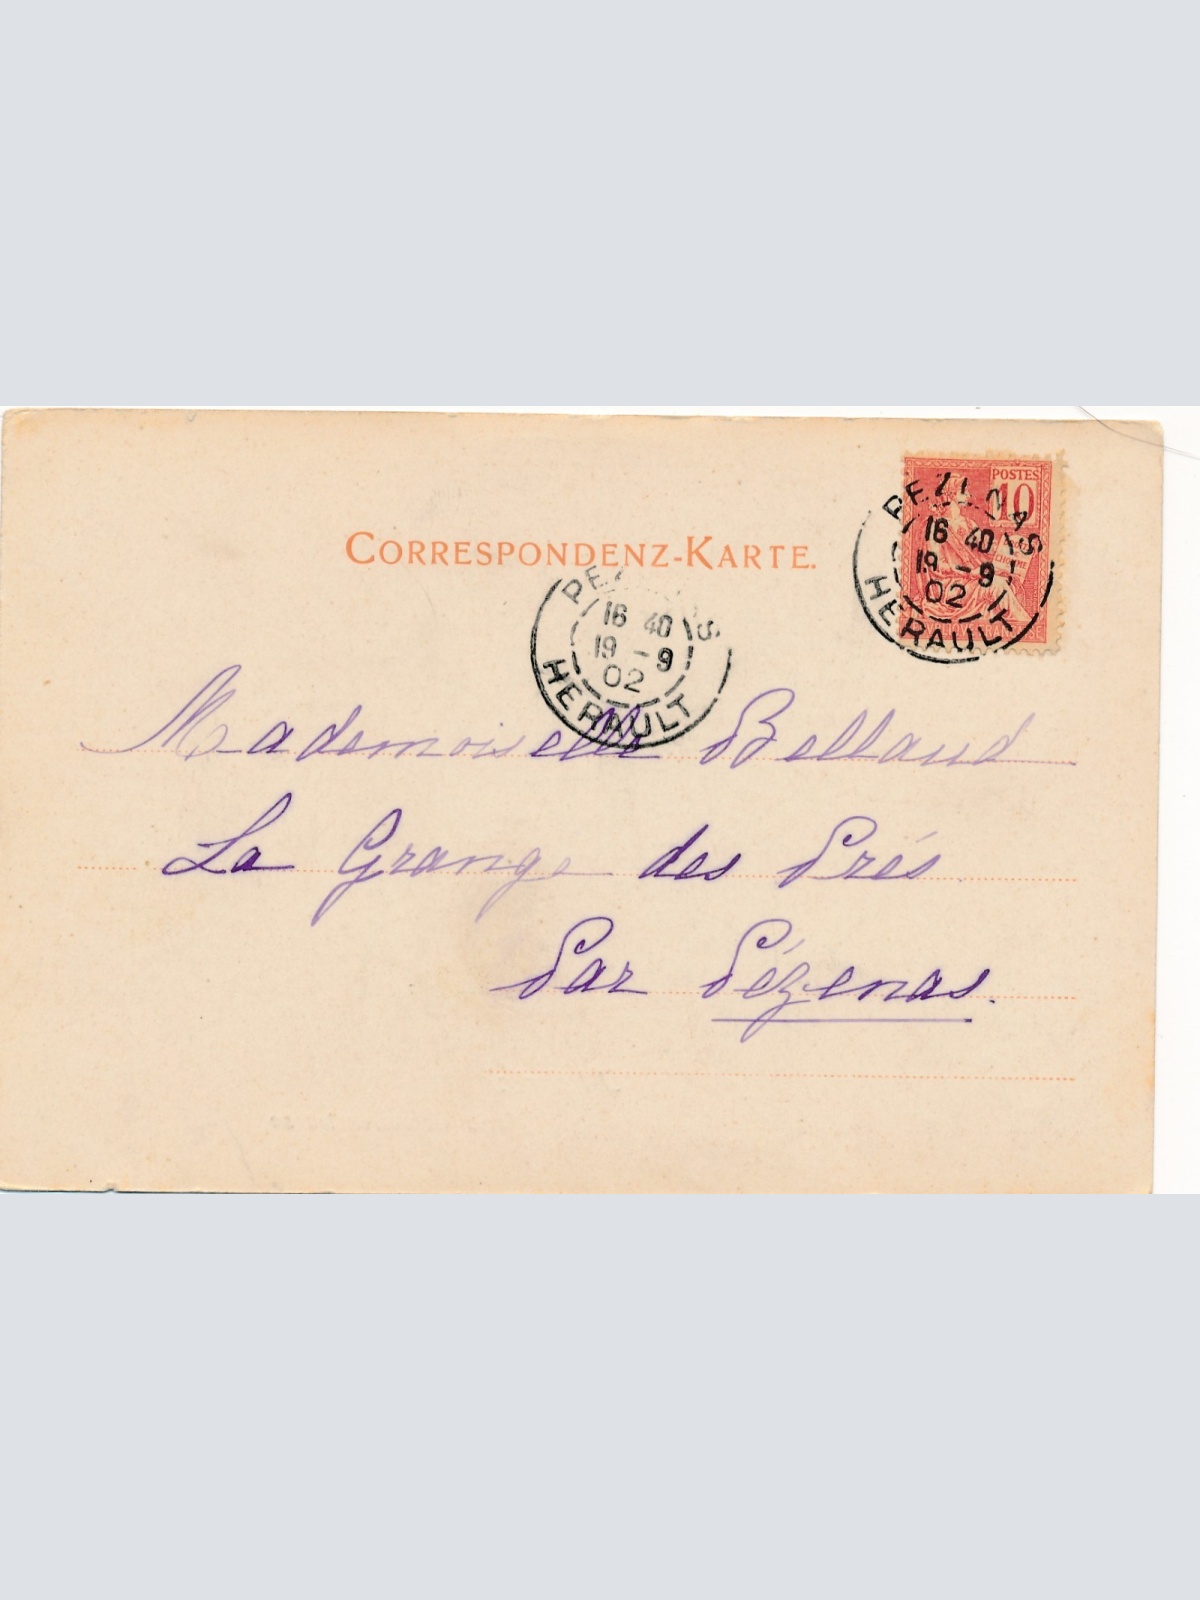 POSTES
10
PEZENAS
16 40
19 - 9
02
HERAULT
CORRESPONDENZ-KARTE.
PE AS
16 40
19 - 9
02
HERAULT
Mademoiselle Bellaud
La Grange des Prés
Par Pézenas.